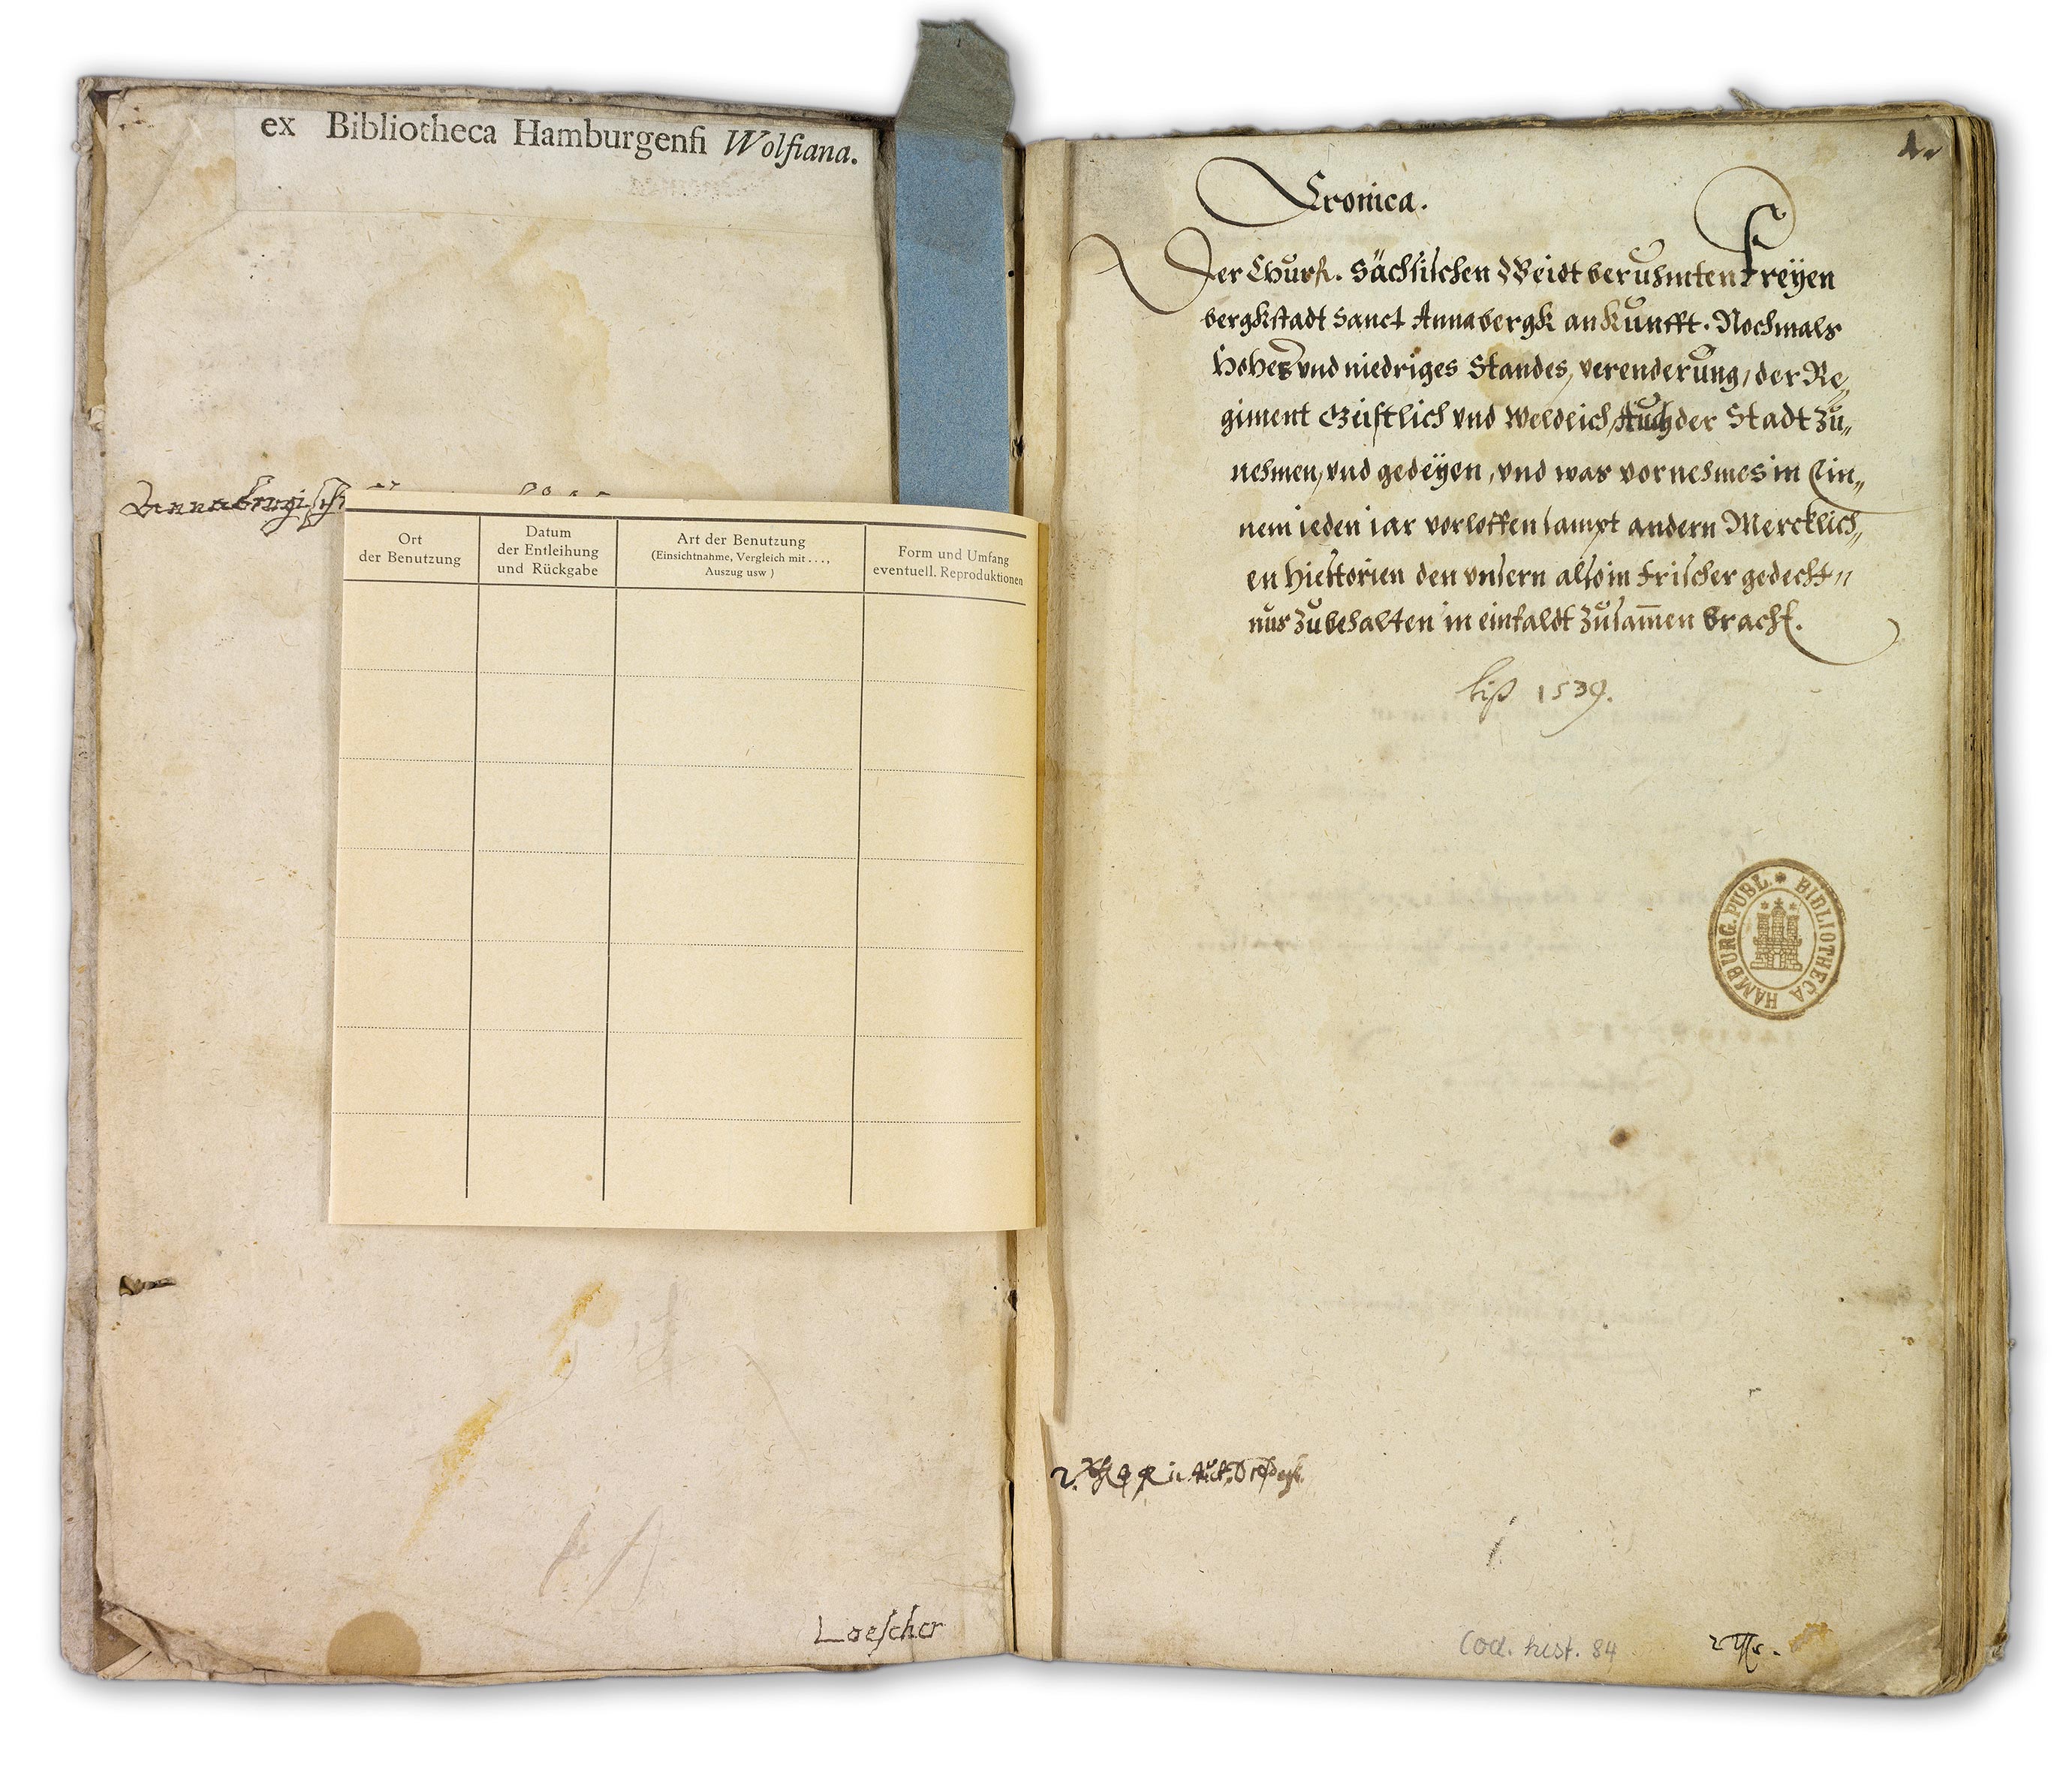 ex Bibliotheca Hamburgenſi Wolfiana.
Ort
der Benutzung
Datum
der Entleihung
und Rückgabe
Art der Benutzung
(Einsichtnahme, Vergleich mit . . . ,
Auszug usw )
Form und Umfang
eventuell. Reproduktionen
Loeſcher
Cronica.
Der Churf. Sächſiſchen Weidt beruhmten Freÿen
bergkſtadt Sanct Annabergk ankunfft. Nochmals
Hohes vnd niedriges Standes, verenderung, der Re„
giment Geiſtlich vnd Weldlich, Auch der Stadt Zu„
nehmen, vnd gedeÿen, vnd was vornehmes in Ein„
nem ieden iar vorloffen ſampt andern Mercklich„
en Hieſtorien den vnſern alſo in friſcher gedecht„
nus Zubehalten in einfaldt Zuſam̄en bracht.
biß 1539.
HAMBURG. PUBL. * BIBLIOTHECA
Cod. hist. 84